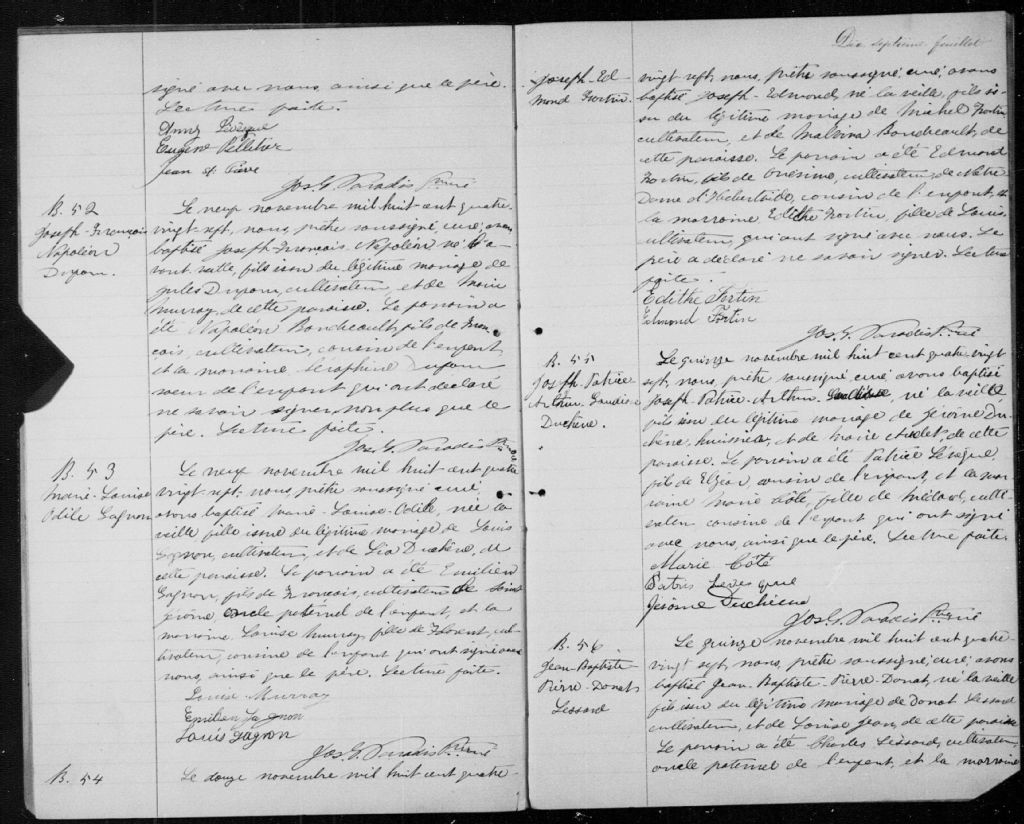 signé avec nous, ainsi que le père.
Lecture faite.
Anny Levêque
Eugène Pelletier
Jean
Jos. G. Paradis Ptre curé
B. 52
Joseph-François
Napoléon
Dufour.
Le neuf novembre mil huit cent quatre-
vingt-sept, nous, prêtre soussigné, curé, avons
baptisé Joseph-François Napoléon né l'a-
vant veille, fils issu du légitime mariage de
Jules Dufour, cultivateur, et de Marie
Murray, de cette paroisse. Le parrain a
été Napoléon Boudreault, fils de Fran-
çois, cultivateur, cousin de l'enfant,
et la marraine Séraphine Dufour
soeur de l'enfant qui ont déclaré
ne savoir signer, non plus que le
père. Lecture faite.
Jos. G. Paradis Ptre curé
B. 53
Marie-Louise
Odile Gagnon
Le neuf novembre mil huit cent quatre
vingt-sept, nous, prêtre soussigné curé
avons baptisé Marie-Louise-Odile, née la
veille fille issue du légitime mariage de Louis
Gagnon, cultivateur, et de Léa Duchêne, de
cette paroisse. Le parrain a été Emilien
Gagnon, fils de François, cultivateur de Saint
Jérôme, oncle paternel de l'enfant, et la
marraine Louise Murray, fille de Florent, cul-
tivateur, cousine de l'enfant qui ont signé avec
nous, ainsi que le père. Lecture faite.
Louise Murray
Emilien Gagnon
Louis Gagnon
Jos. G. Paradis Ptre curé
B. 54
Le douze novembre mil huit cent quatre-
Dix septième feuillet
Joseph-Ed-
mond Fortin.
vingt sept, nous, prêtre soussigné, curé, avons
baptisé Joseph-Edmond, né la veille, fils is-
su du légitime mariage de Michel Fortin,
cultivateur, et de Malvina Boudreault, de
cette paroisse. Le parrain a été Edmond
Fortin, fils de Onésime, cultivateur, de Notre
Dame d'Hébertville, cousin de l'enfant, et
la marraine Edithe Fortin, fille de Louis
cultivateur, qui ont signé avec nous. Le
père a déclaré ne savoir signer. Lecture
faite.
Edithe Fortin
Edmond Fortin
Jos. G. Paradis Ptre curé
B. 55
Joseph-Patrice
Arthur Gaudiose
Duchêne.
Le quinze novembre mil huit cent quatre vingt
sept, nous, prêtre soussigné curé avons baptisé
Joseph Patrice-Arthur-Gaudiose, né la veille,
fils issu du légitime mariage de Jérôme Du-
chêne, huissier, et de Marie de cette
paroisse. Le parrain a été Patrice Levesque
fils de Elzear cousin de l'enfant, et la mar-
raine Marie Côté, fille de culti-
vateur, cousine de l'enfant qui ont signé
avec nous, ainsi que le père. Lecture faite.
Marie Côté
Patris Levesque
Jérôme Duchêne
Jos. G. Paradis Ptre curé
B. 56
Jean-Baptiste
Pierre-Donat
Lessard
Le quinze novembre mil huit cent quatre-
vingt sept, nous, prêtre soussigné, curé, avons
baptisé Jean-Baptiste-Pierre-Donat, né la veille
fils issu du légitime mariage de Donat Lessard
cultivateur, et de Louise Jean, de cette paroisse
Le parrain a été Charles Lessard, cultivateur,
oncle paternel de l'enfant, et la marraine